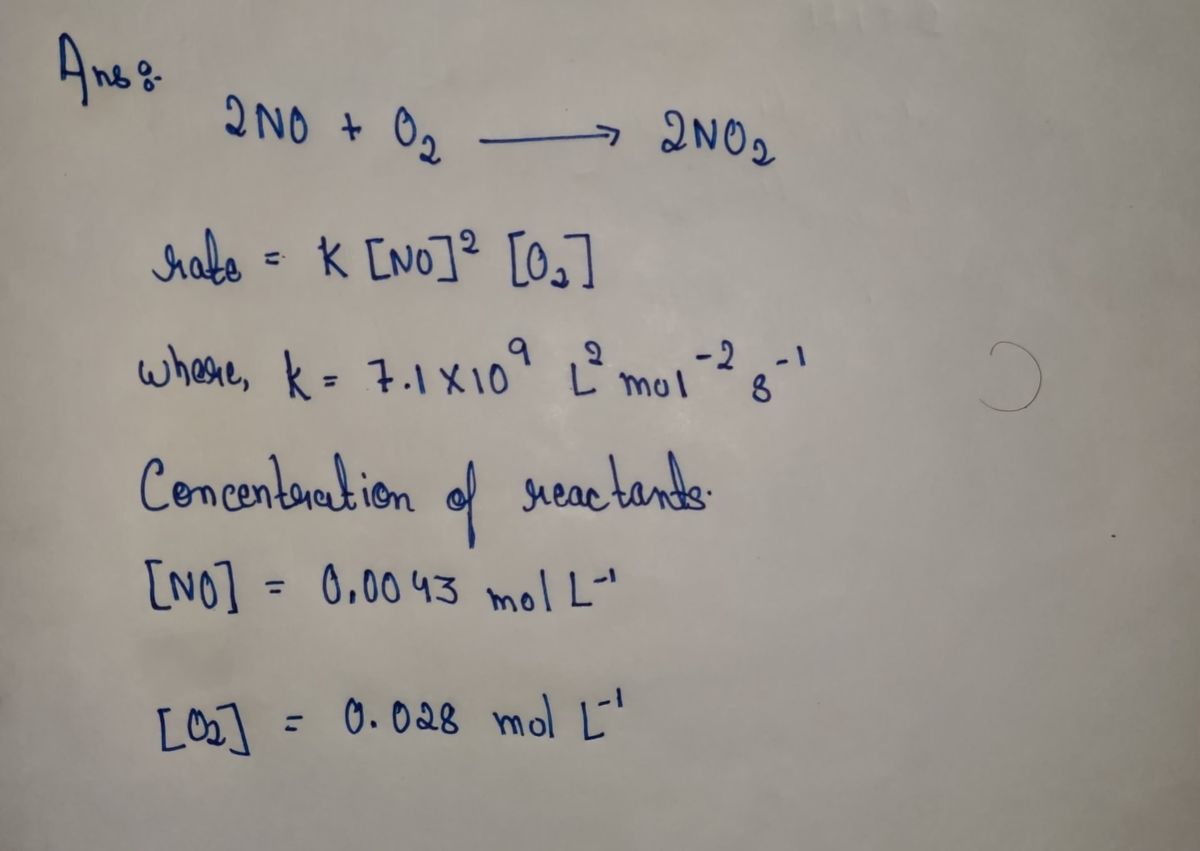 Ans:-
2NO + O₂ ⟶ 2NO₂
rate = K [NO]² [O₂]
where, k = 7.1 X 10⁹ L² mol⁻² s⁻¹
Concentration of reactants.
[NO] = 0.0043 mol L⁻¹
[O₂] = 0.028 mol L⁻¹